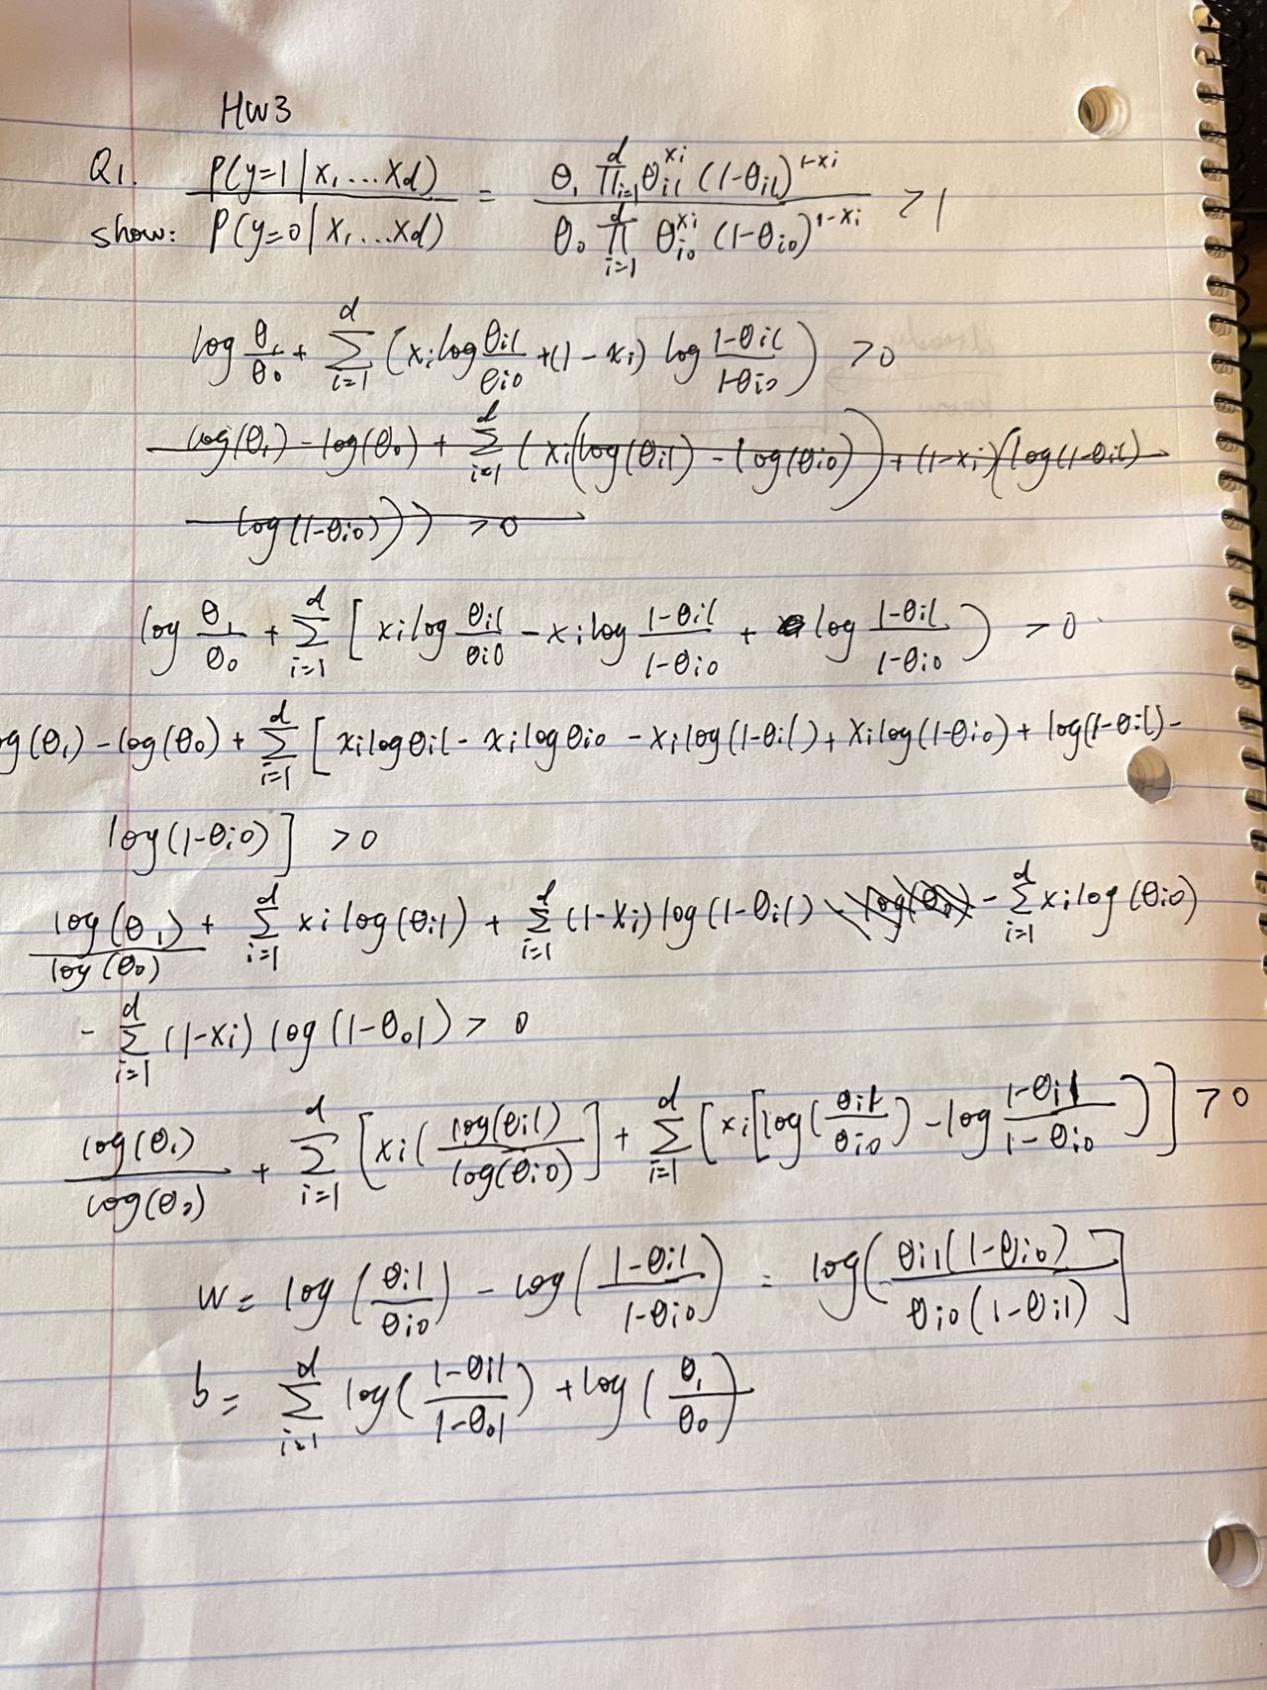 HW3
Q1. P(y=1|x₁...xd) / P(y=0|x₁...xd) = θ₁ ∏_{i=1}^{d} θi1^{xi} (1-θi1)^{1-xi} / θ₀ ∏_{i=1}^{d} θi0^{xi} (1-θi0)^{1-xi} > 1
show:
log θ₁/θ₀ + Σ_{i=1}^{d} (xi log θi1/θi0 + (1-xi) log (1-θi1)/(1-θi0)) > 0
log(θ₁) - log(θ₀) + Σ_{i=1}^{d} (xi(log(θi1) - log(θi0)) + (1-xi)(log(1-θi1) -
log(1-θi0))) > 0
log θ₁/θ₀ + Σ_{i=1}^{d} [xi log θi1/θi0 - xi log (1-θi1)/(1-θi0) + log (1-θi1)/(1-θi0)) > 0
og(θ₁) - log(θ₀) + Σ_{i=1}^{d} [xi log θi1 - xi log θi0 - xi log(1-θi1) + xi log(1-θi0) + log(1-θi1) -
log(1-θi0)] > 0
log(θ₁)/log(θ₀) + Σ_{i=1}^{d} xi log(θi1) + Σ_{i=1}^{d} (1-xi) log(1-θi1) - log(θ₀) - Σ_{i=1}^{d} xi log(θi0)
- Σ_{i=1}^{d} (1-xi) log(1-θ01) > 0
log(θ₁)/log(θ₀) + Σ_{i=1}^{d} [xi( log(θi1)/log(θi0) ] + Σ_{i=1}^{d} [xi[log(θi1/θi0) - log (1-θi1)/(1-θi0) )] > 0
w = log(θi1/θi0) - log((1-θi1)/(1-θi0)) = log( θi1(1-θi0) / θi0(1-θi1) ]
b = Σ_{i=1}^{d} log( (1-θ11)/(1-θ01) ) + log(θ₁/θ₀)